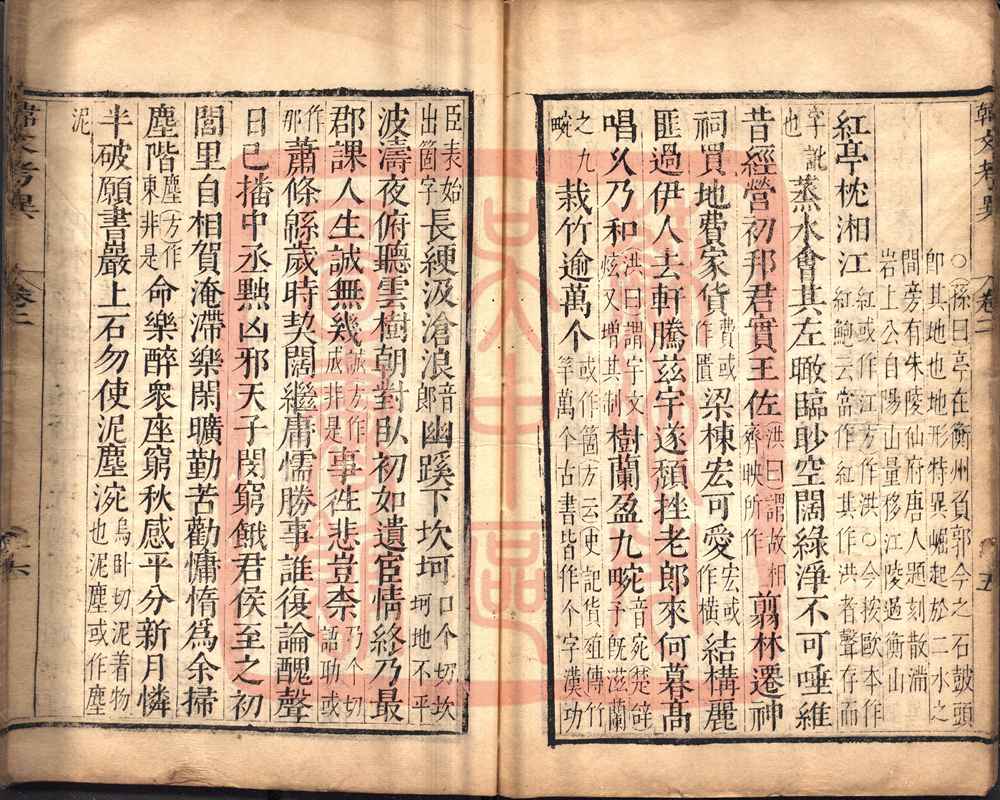 韓文考異 卷二 五
○孫曰亭在衡州負郭今之石鼓頭
卽其地也地形特異崛起於二水之
間旁有朱陵仙府唐人題刻散滿
岩上公自陽山量移江陵過衡山
紅亭枕湘江紅或作江方作洪○今按歐本作紅鮑云當作紅其作洪者聲存而
字訛也蒸水會其左瞰臨眇空闊綠淨不可唾維
昔經營初邦君實王佐洪曰謂故相齊映所作翦林遷神
祠買地費家貨費或作匱梁棟宏可愛宏或作橫結構麗
匪過伊人去軒騰茲宇遂頹挫老郎來何暮高
唱久乃和洪曰謂宇文炫又增其制樹蘭盈九畹音宛楚辭予旣滋蘭
之九畹栽竹逾萬个或作箇方云史記貨殖傳竹竿萬个古書皆作个字漢功
臣表始出箇字長綆汲滄浪音郎幽蹊下坎坷口个切坎坷地不平
波濤夜俯聽雲樹朝對臥初如遺宦情終乃最
郡課人生誠無幾誠方作成非是事往悲豈柰乃个切語助或
作那蕭條緜歲時契闊繼庸懦勝事誰復論醜聲
日已播中丞黜凶邪天子閔窮餓君侯至之初
閭里自相賀淹滯樂閑曠勤苦勸慵惰爲余掃
塵階塵方作東非是命樂醉衆座窮秋感平分新月憐
半破願書巖上石勿使泥塵涴烏臥切泥着物也泥塵或作塵
泥
韓文考異 卷二 六